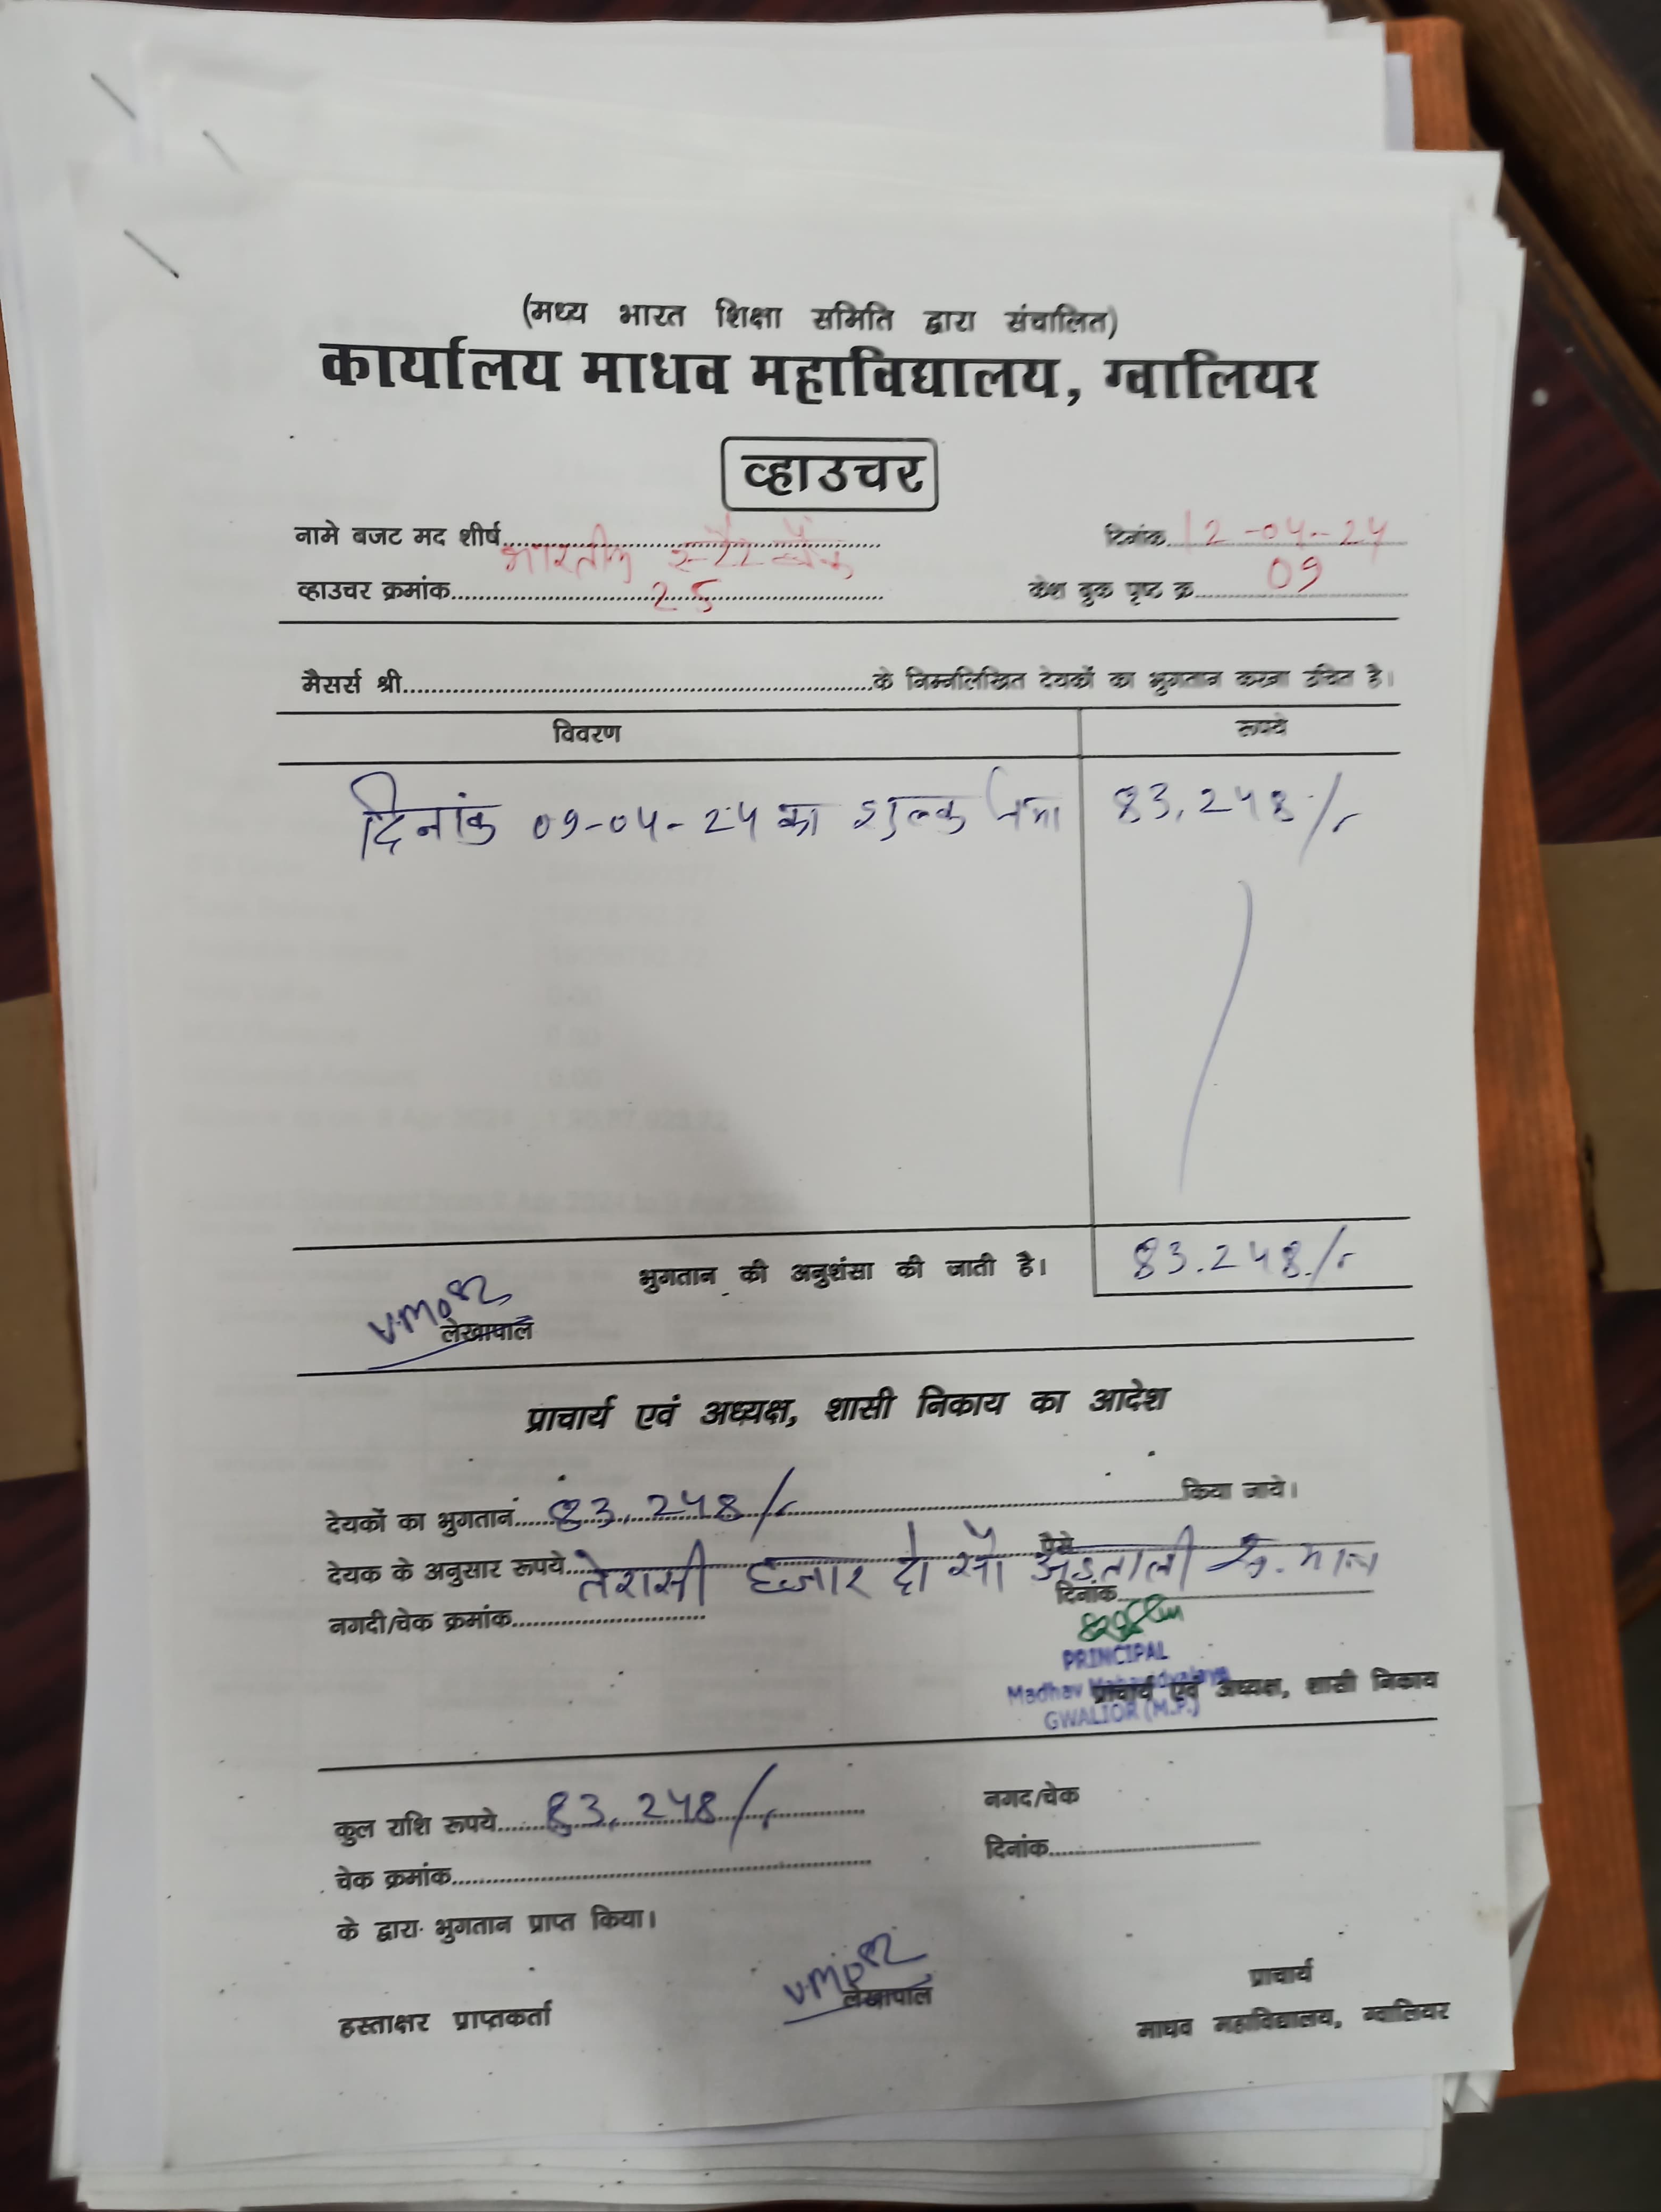 (मध्य भारत शिक्षा समिति द्वारा संचालित)
कार्यालय माधव महाविद्यालय, ग्वालियर
व्हाउचर
नामे बजट मद शीर्ष भारतीय स्टेट बैंक दिनांक 12-04-24
व्हाउचर क्रमांक 25 केश बुक पृष्ट क्र 09
मैसर्स श्री के निम्नलिखित देयकों का भुगतान करना उचित है।
विवरण रूपये
दिनांक 09-04-24 का शुल्क जमा 83,248/-
भुगतान की अनुशंसा की जाती है। 83.248/-
लेखापाल
प्राचार्य एवं अध्यक्ष, शासी निकाय का आदेश
देयकों का भुगतान 83,248/- किया जाये।
देयक के अनुसार रूपये तेरासी हजार दो सौ अड़ताली रू. मात्र पैसे
नगदी/चेक क्रमांक दिनांक
PRINCIPAL
Madhav Mahavidyalaya
GWALIOR (M.P.)
प्राचार्य एवं अध्यक्ष, शासी निकाय
कुल राशि रूपये 83,248/- नगद/चेक
चेक क्रमांक दिनांक
के द्वारा भुगतान प्राप्त किया।
हस्ताक्षर प्राप्तकर्ता लेखापाल प्राचार्य
माधव महाविद्यालय, ग्वालियर